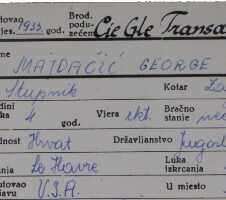 tovao
jes. 1933. god. Brod. podu-
zeće Cie Gle Transa
me MAJDAČIĆ GEORGE
Stupnik Kotar Za
dini
ka 4 god. Vjera rkt. Bračno
stanje
nost Hrvat Državljanstvo Jugosl
nja Le Havre Luka
izkrcanja
utovao
žavu U.S.A. U mjesto